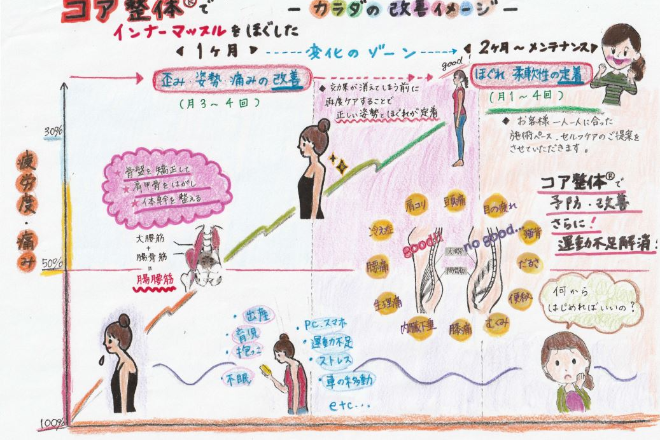 コア整体®で
インナーマッスルをほぐした
－カラダの改善イメージ－
1ヶ月
変化のゾーン
2ヶ月～メンテナンス
歪み 姿勢 痛みの改善
(月3～4回)
◆ 効果が消えてしまう前に
再度ケアすることで
正しい姿勢とほぐれが定着
good
ほぐれ 柔軟性の定着
(月1～4回)
◆ お客様一人一人に合った
施術ペース、セルフケアのご提案を
させていただきます。
30%
疲労度・痛み
50%
100%
骨盤を矯正して
★肩甲骨をはがし
★体幹を整える
大腰筋
+
腸骨筋
=
腸腰筋
肩こり
頭痛
目の疲れ
冷え症
腰痛
だるさ
生理痛
便秘
内臓下垂
膝痛
むくみ
good!!
no good...
コア整体®で
予防・改善
さらに!
運動不足解消!
何から
はじめればいいの?
・出産
・育児
・抱っこ
・不眠
・PC.スマホ
・運動不足
・ストレス
・車の移動
etc...